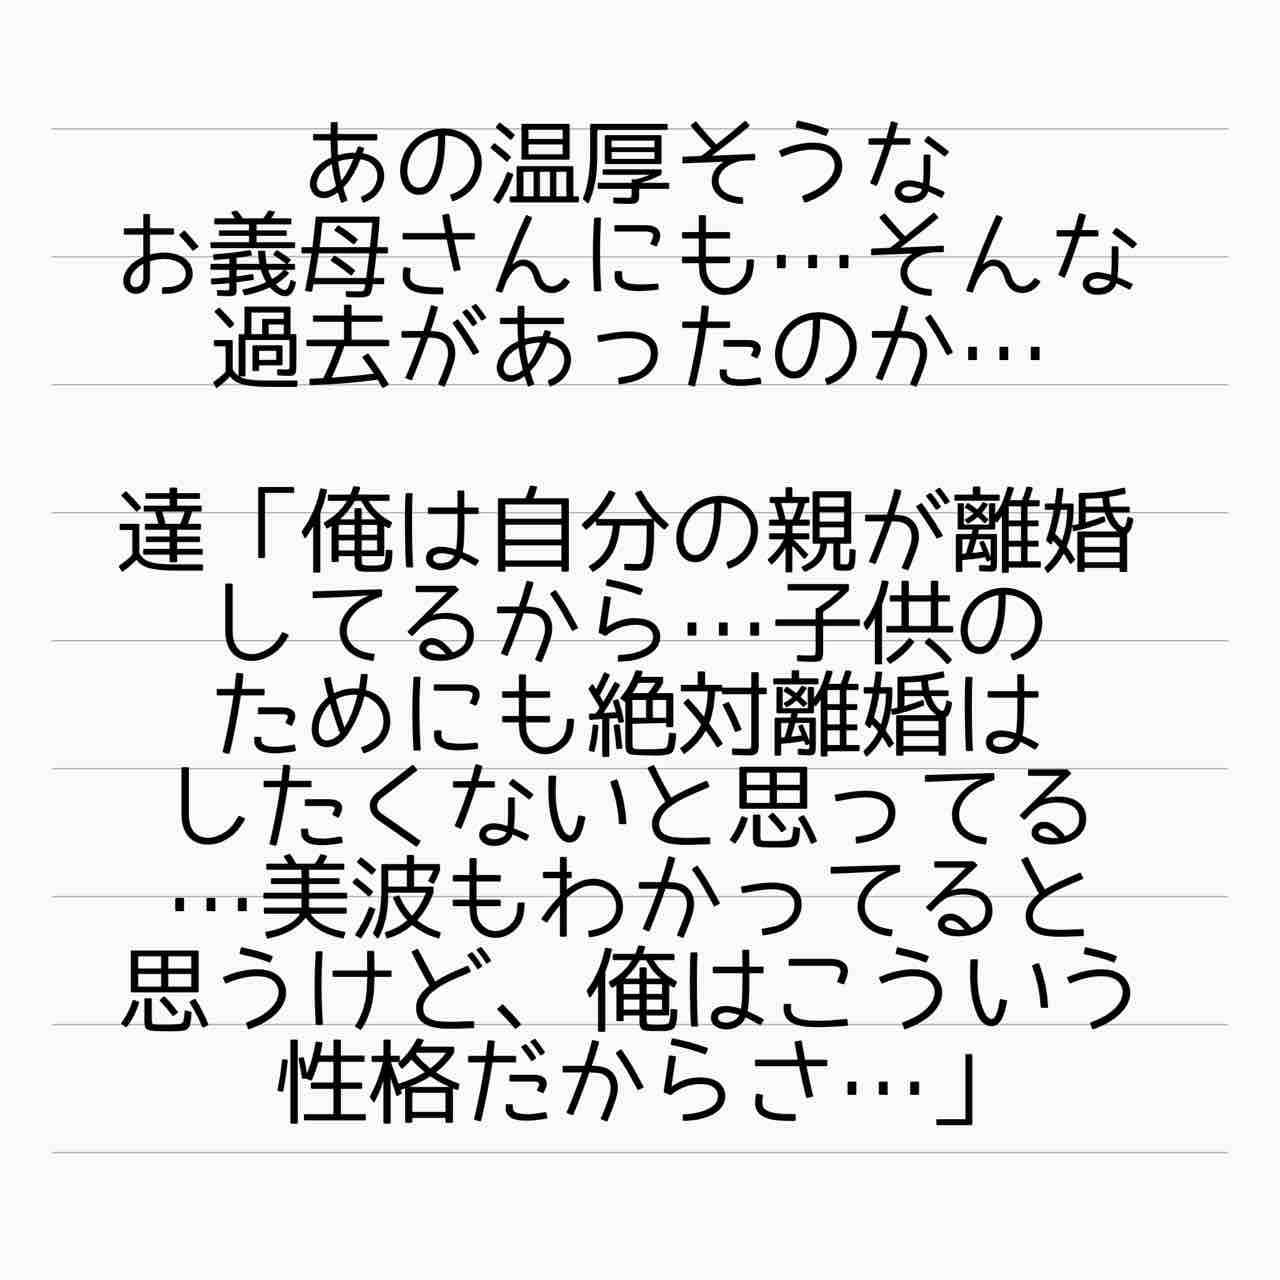 あの温厚そうな
お義母さんにも…そんな
過去があったのか…
達「俺は自分の親が離婚
してるから…子供の
ためにも絶対離婚は
したくないと思ってる
…美波もわかってると
思うけど、俺はこういう
性格だからさ…」